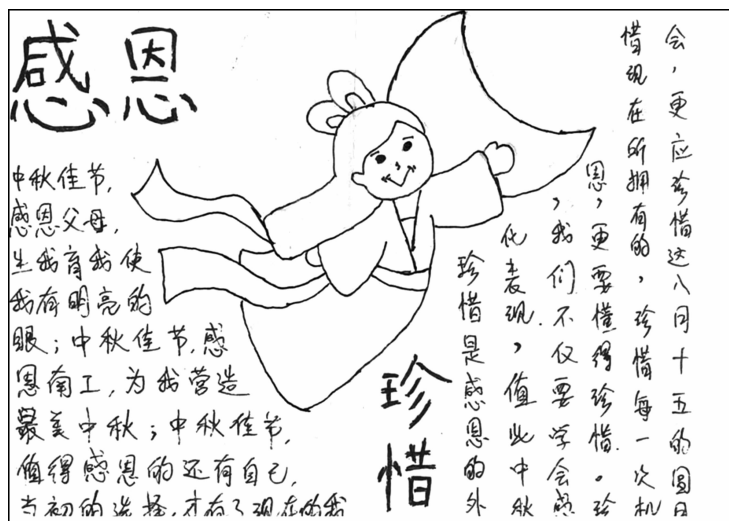 感恩
中秋佳节,
感恩父母,
生我育我使
我有明亮的
眼；中秋佳节,感
恩南工,为我营造
最美中秋；中秋佳节,
值得感恩的还有自己,
当初的选择,才有了现在的我
珍惜
珍惜是感恩的外
化表现,值此中秋
,我们不仅要学会感
恩,更要懂得珍惜。珍
惜现在所拥有的,珍惜每一次机
会,更应珍惜这八月十五的圆月